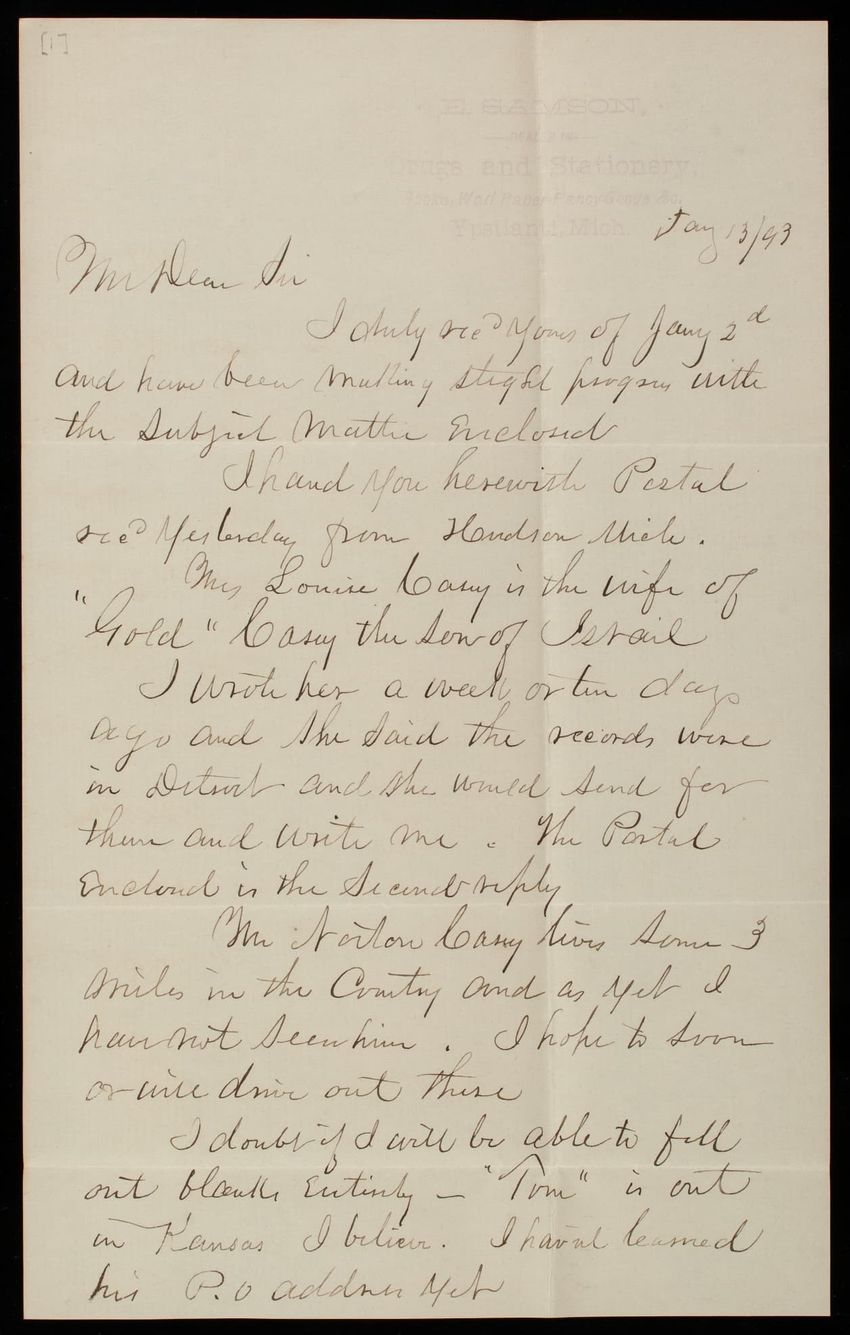 [1]
E. SAMSON,
DEALER IN
Drugs and Stationery,
Books, Wall Paper Fancy Goods &c.
Ypsilanti, Mich.
Jany 13/93
My Dear Sir
I duly rec'd yours of Jany 2d
and have been making slight progress with
the subject matter Enclosed
I hand you herewith Postal
rec'd yesterday from Hudson Mich.
Mrs Louise Casey is the wife of
"Gold" Casey the son of Israil
I wrote her a week or ten days
ago and she said the records were
in Detroit and she would send for
them and write me. The Postal
Enclosed is the second reply
Mr Norton Casey lives some 3
miles in the Country and as yet I
have not seen him. I hope to soon
or will drive out there
I doubt if I will be able to fill
out blanks Entirely - "Tom" is out
in Kansas I believe. I havnt learned
his P.O address yet